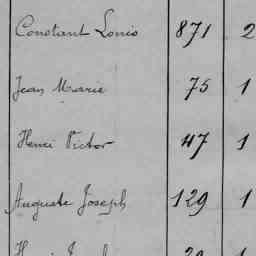 Constant Louis 871 2
Jean Marie 75 1
Henri Victor 47 1
Auguste Joseph 129 1